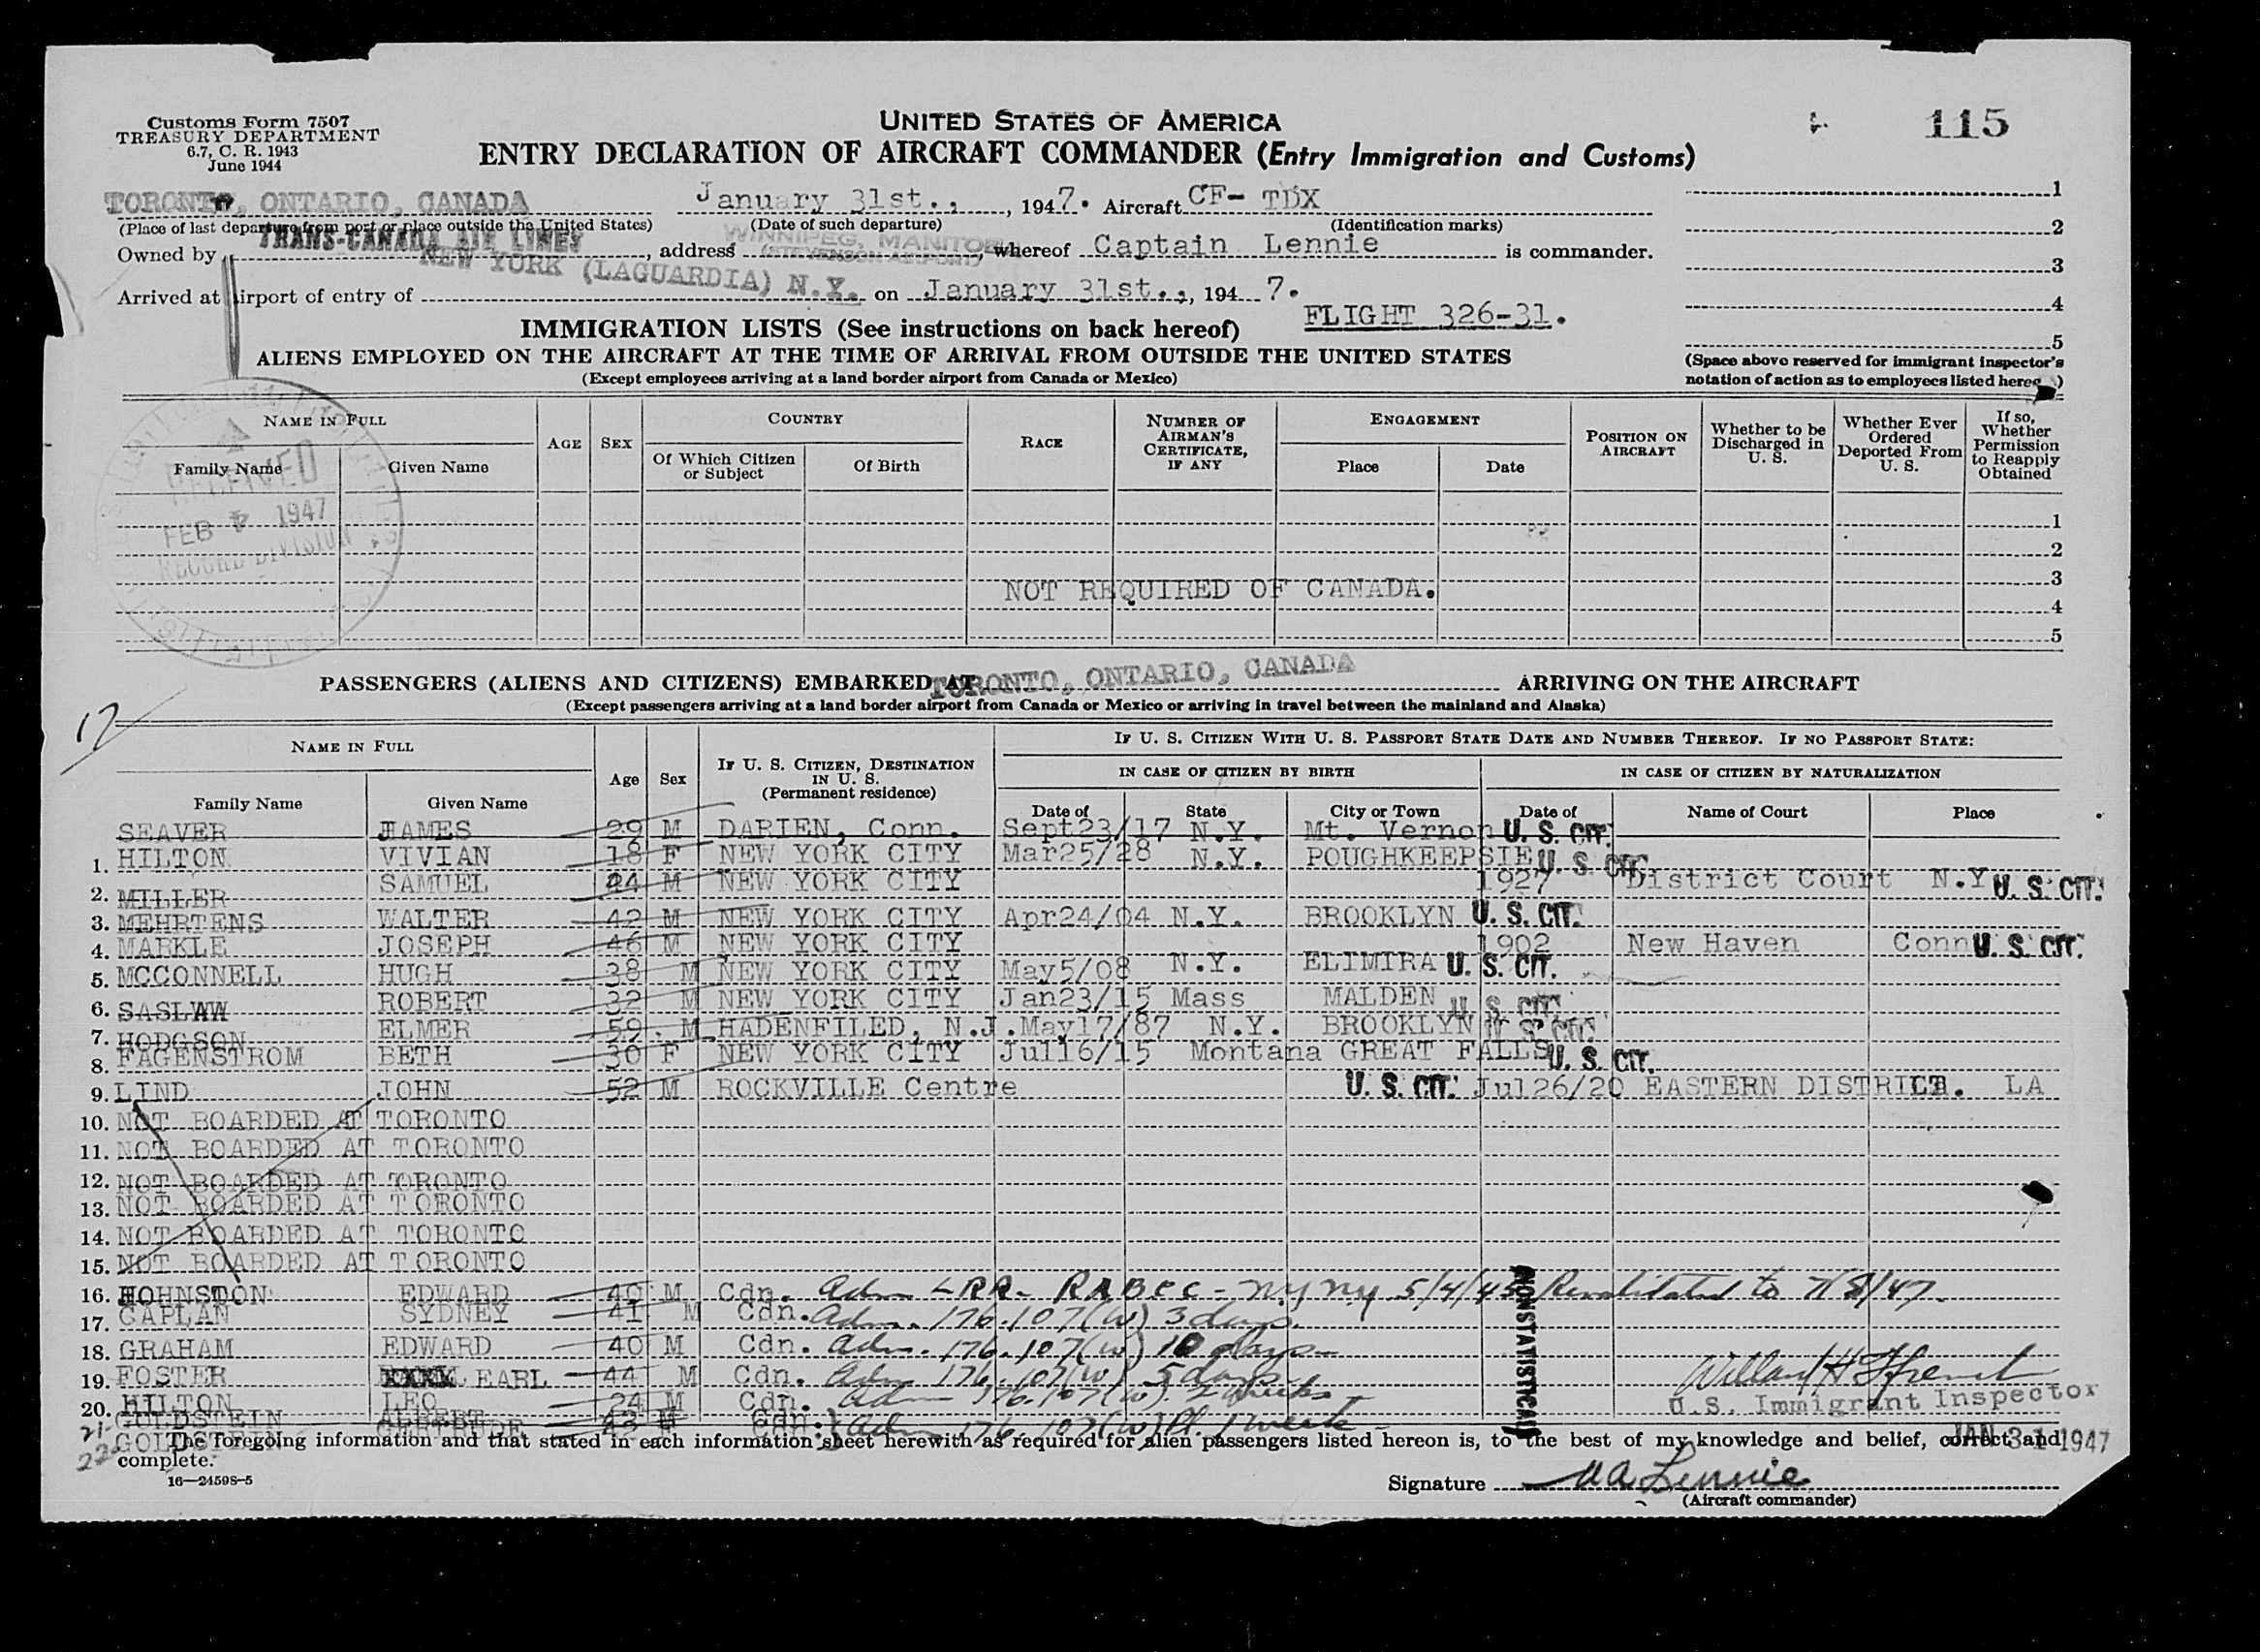 Customs Form 7507
TREASURY DEPARTMENT
6.7, C. R. 1943
June 1944
UNITED STATES OF AMERICA
115
ENTRY DECLARATION OF AIRCRAFT COMMANDER (Entry Immigration and Customs)
TORONTO, ONTARIO, CANADA January 31st., , 1947. Aircraft CF- TDX
(Place of last departure from port or place outside the United States) (Date of such departure) (Identification marks)
Owned by TRANS-CANADA AIR LINES, address WINNIPEG, MANITOBA whereof Captain Lennie is commander.
Arrived at airport of entry of NEW YORK (LAGUARDIA) N.Y. on January 31st., , 194 7.
FLIGHT 326-31.
1
2
3
4
5
(Space above reserved for immigrant inspector's notation of action as to employees listed hereon)
IMMIGRATION LISTS (See instructions on back hereof)
ALIENS EMPLOYED ON THE AIRCRAFT AT THE TIME OF ARRIVAL FROM OUTSIDE THE UNITED STATES
(Except employees arriving at a land border airport from Canada or Mexico)
NAME IN FULL AGE SEX COUNTRY RACE NUMBER OF AIRMAN'S CERTIFICATE, IF ANY ENGAGEMENT POSITION ON AIRCRAFT Whether to be Discharged in U. S. Whether Ever Ordered Deported From U. S. If so, Whether Permission to Reapply Obtained
Family Name Given Name Of Which Citizen or Subject Of Birth Place Date
RECEIVED
FEB 4 1947
RECORD DIVISION
1
2
3
NOT REQUIRED OF CANADA.
4
5
PASSENGERS (ALIENS AND CITIZENS) EMBARKED AT TORONTO, ONTARIO, CANADA ARRIVING ON THE AIRCRAFT
(Except passengers arriving at a land border airport from Canada or Mexico or arriving in travel between the mainland and Alaska)
17
NAME IN FULL Age Sex IF U. S. CITIZEN, DESTINATION IN U. S. (Permanent residence) IF U. S. CITIZEN WITH U. S. PASSPORT STATE DATE AND NUMBER THEREOF. IF NO PASSPORT STATE:
IN CASE OF CITIZEN BY BIRTH IN CASE OF CITIZEN BY NATURALIZATION
Family Name Given Name Date of State City or Town Date of Name of Court Place
SEAVER JAMES 29 M DARIEN, Conn. Sept23/17 N.Y. Mt. Vernon U. S. CIT.
1. HILTON VIVIAN 18 F NEW YORK CITY Mar25/28 N.Y. POUGHKEEPSIE U. S. CIT.
2. MILLER SAMUEL 44 M NEW YORK CITY 1927 District Court N.Y U. S. CIT.
3. MEHRTENS WALTER 42 M NEW YORK CITY Apr24/04 N.Y. BROOKLYN U. S. CIT.
4. MARKLE JOSEPH 46 M NEW YORK CITY 1902 New Haven Conn U. S. CIT.
5. MCCONNELL HUGH 38 M NEW YORK CITY May5/08 N.Y. ELIMIRA U. S. CIT.
6. SASLAW ROBERT 32 M NEW YORK CITY Jan23/15 Mass MALDEN U. S. CIT.
7. HODGSON ELMER 59. M HADENFILED, N.J. May17/87 N.Y. BROOKLYN U. S. CIT.
8. FAGENSTROM BETH 30 F NEW YORK CITY Jul16/15 Montana GREAT FALLS U. S. CIT.
9. LIND JOHN 52 M ROCKVILLE Centre U. S. CIT. Jul26/20 EASTERN DISTRICT. LA
10. NOT BOARDED AT TORONTO
11. NOT BOARDED AT TORONTO
12. NOT BOARDED AT TORONTO
13. NOT BOARDED AT TORONTO
14. NOT BOARDED AT TORONTO
15. NOT BOARDED AT TORONTO
16. JOHNSTON EDWARD 40 M Cdn. Adm LRR- RABCC - NY NY 5/4/45 Revalidated to 7/8/47.
17. CAPLAN SYDNEY 41 M Cdn. Adm. 176.107(W) 3 days
18. GRAHAM EDWARD 40 M Cdn. Adm. 176.107(W) 10 days
19. FOSTER EARL 44 M Cdn. Adm 176.107(W) 5 days
20. HILTON LEO 24 M Cdn. Adm 176.107(W). 2 weeks
21 GOLDSTEIN ALBERT 43 M Cdn. Adm 176.107(W) Pl. 1 week
22 GOLDSTEIN GERTRUDE
NONSTATISTICAL
U.S. Immigrant Inspector
JAN 31 1947
The foregoing information and that stated in each information sheet herewith as required for alien passengers listed hereon is, to the best of my knowledge and belief, correct and complete.
16—24598-5
Signature Lennie
(Aircraft commander)